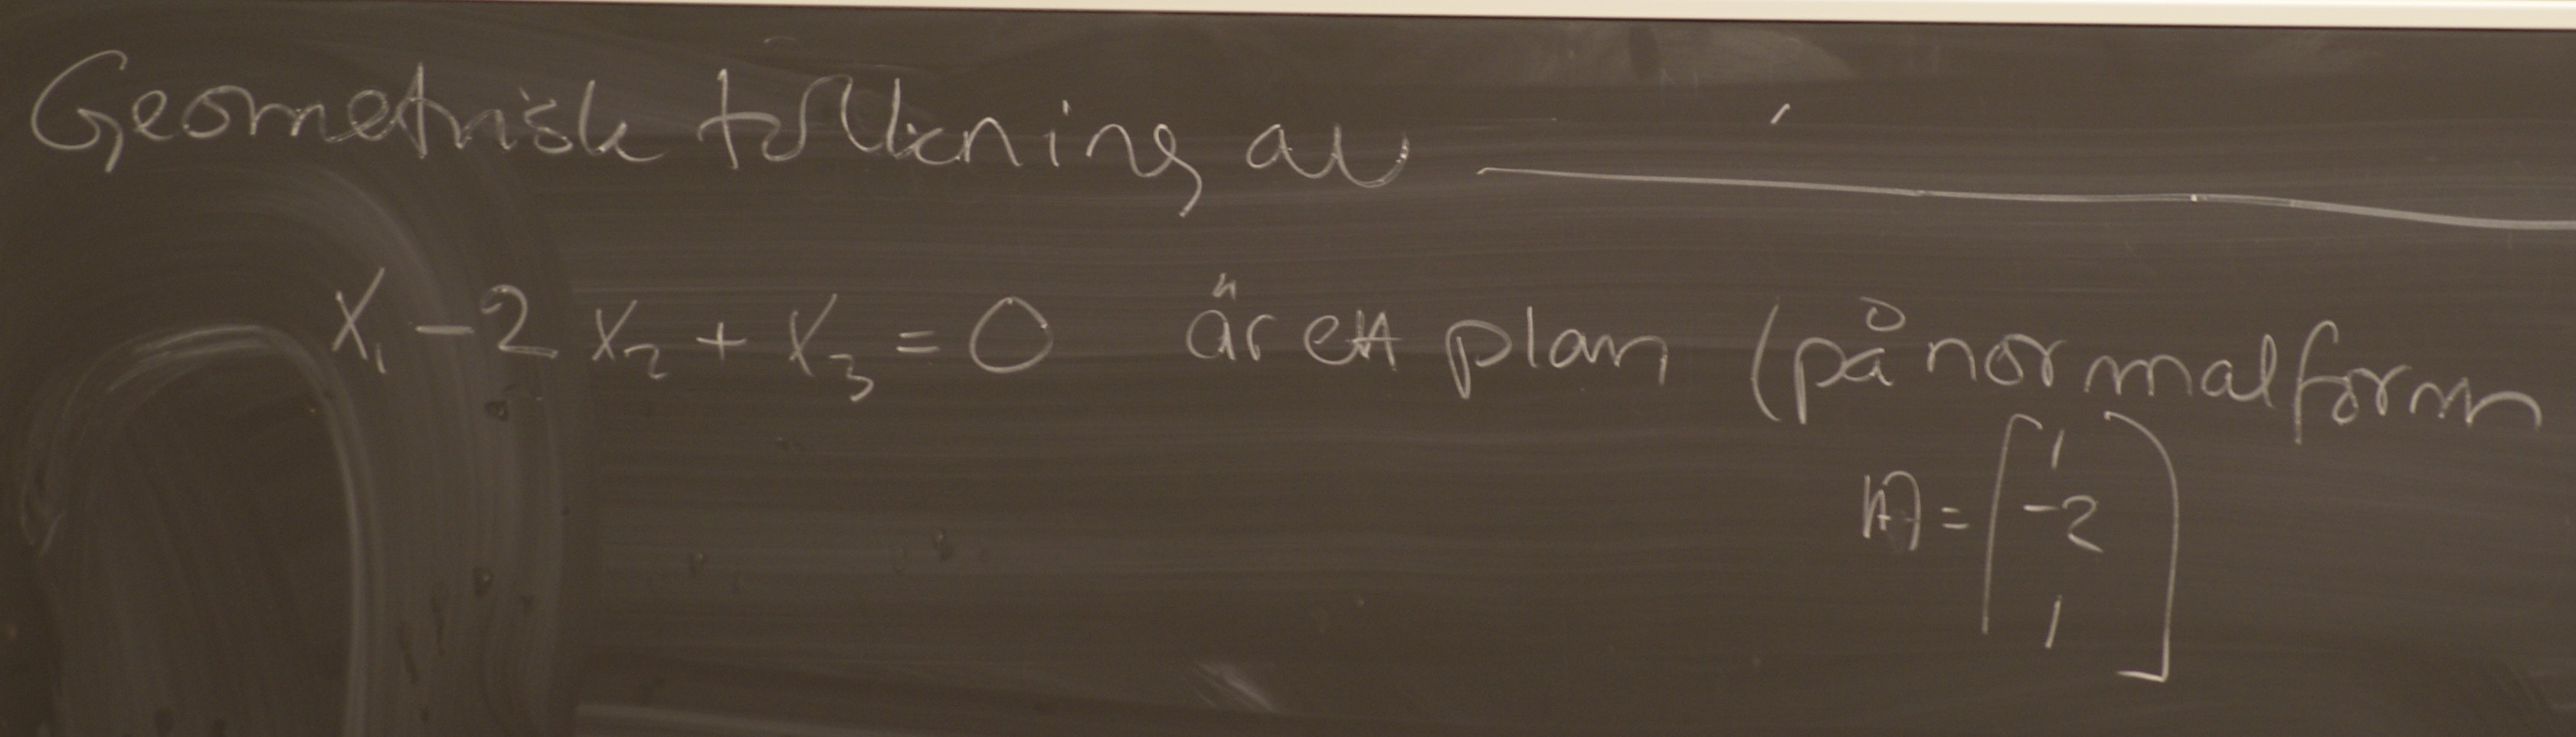 Geometrisk tolkning av
x₁ - 2x₂ + x₃ = 0 är ett plan (på normalform
n = [1
-2
1]